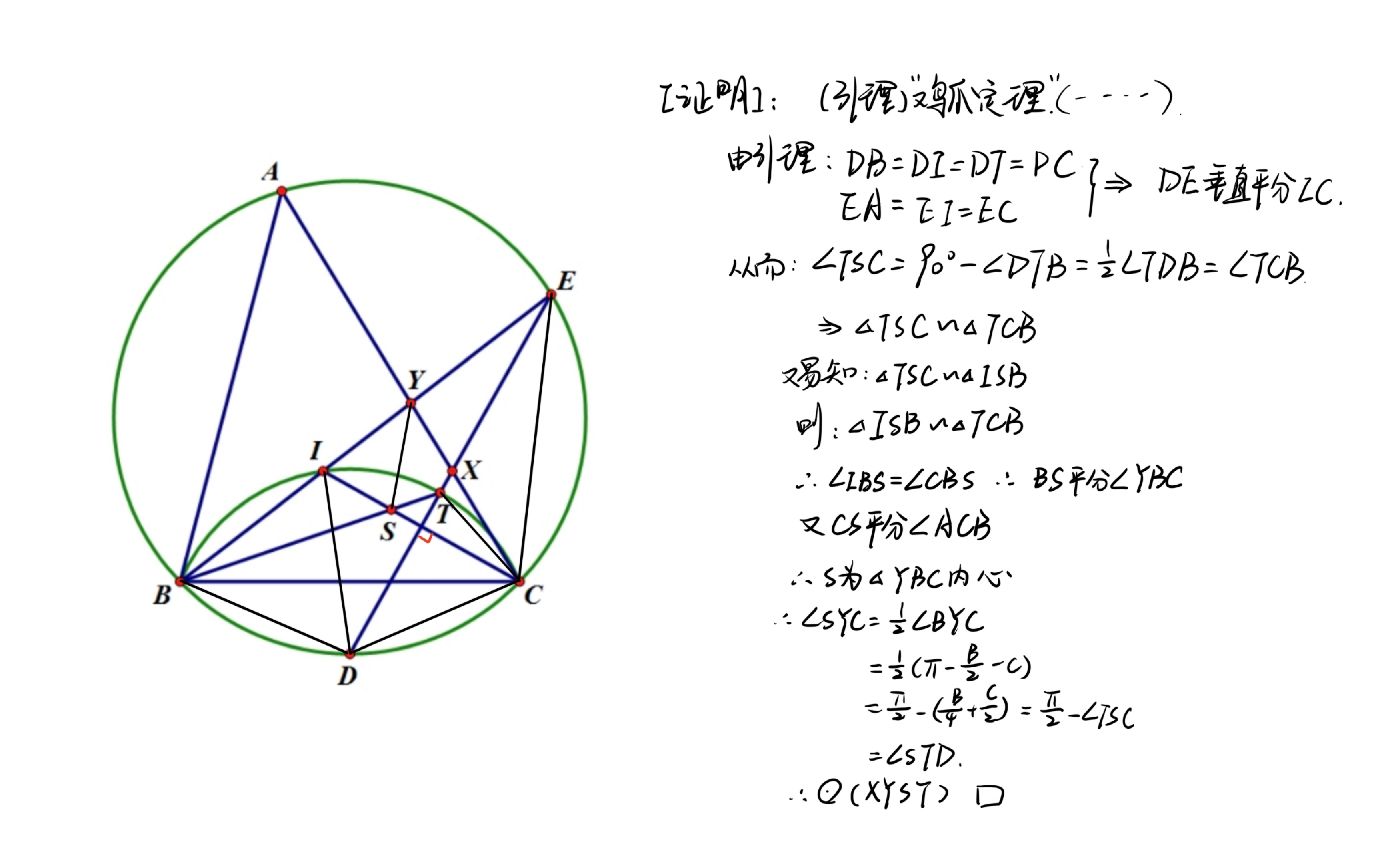 A
E
Y
I
X
S
T
B
C
D
【证明】：（引理）“鸡爪定理”（-----）.
由引理：DB=DI=DT=DC
EA=EI=EC
} ⇒ DE垂直平分IC.
从而：∠TSC=90°-∠DTB=½∠TDB=∠TCB.
⇒ △TSC∽△TCB
又易知：△TSC∽△ISB
则：△ISB∽△TCB
∴∠IBS=∠CBS ∴ BS平分∠YBC
又CS平分∠ACB
∴S为△YBC内心
∴∠SYC=½∠BYC
=½(π-B/2-C)
=π/2-(B/4+C/2)=π/2-∠TSC
=∠STD.
∴⊙(XYST) □